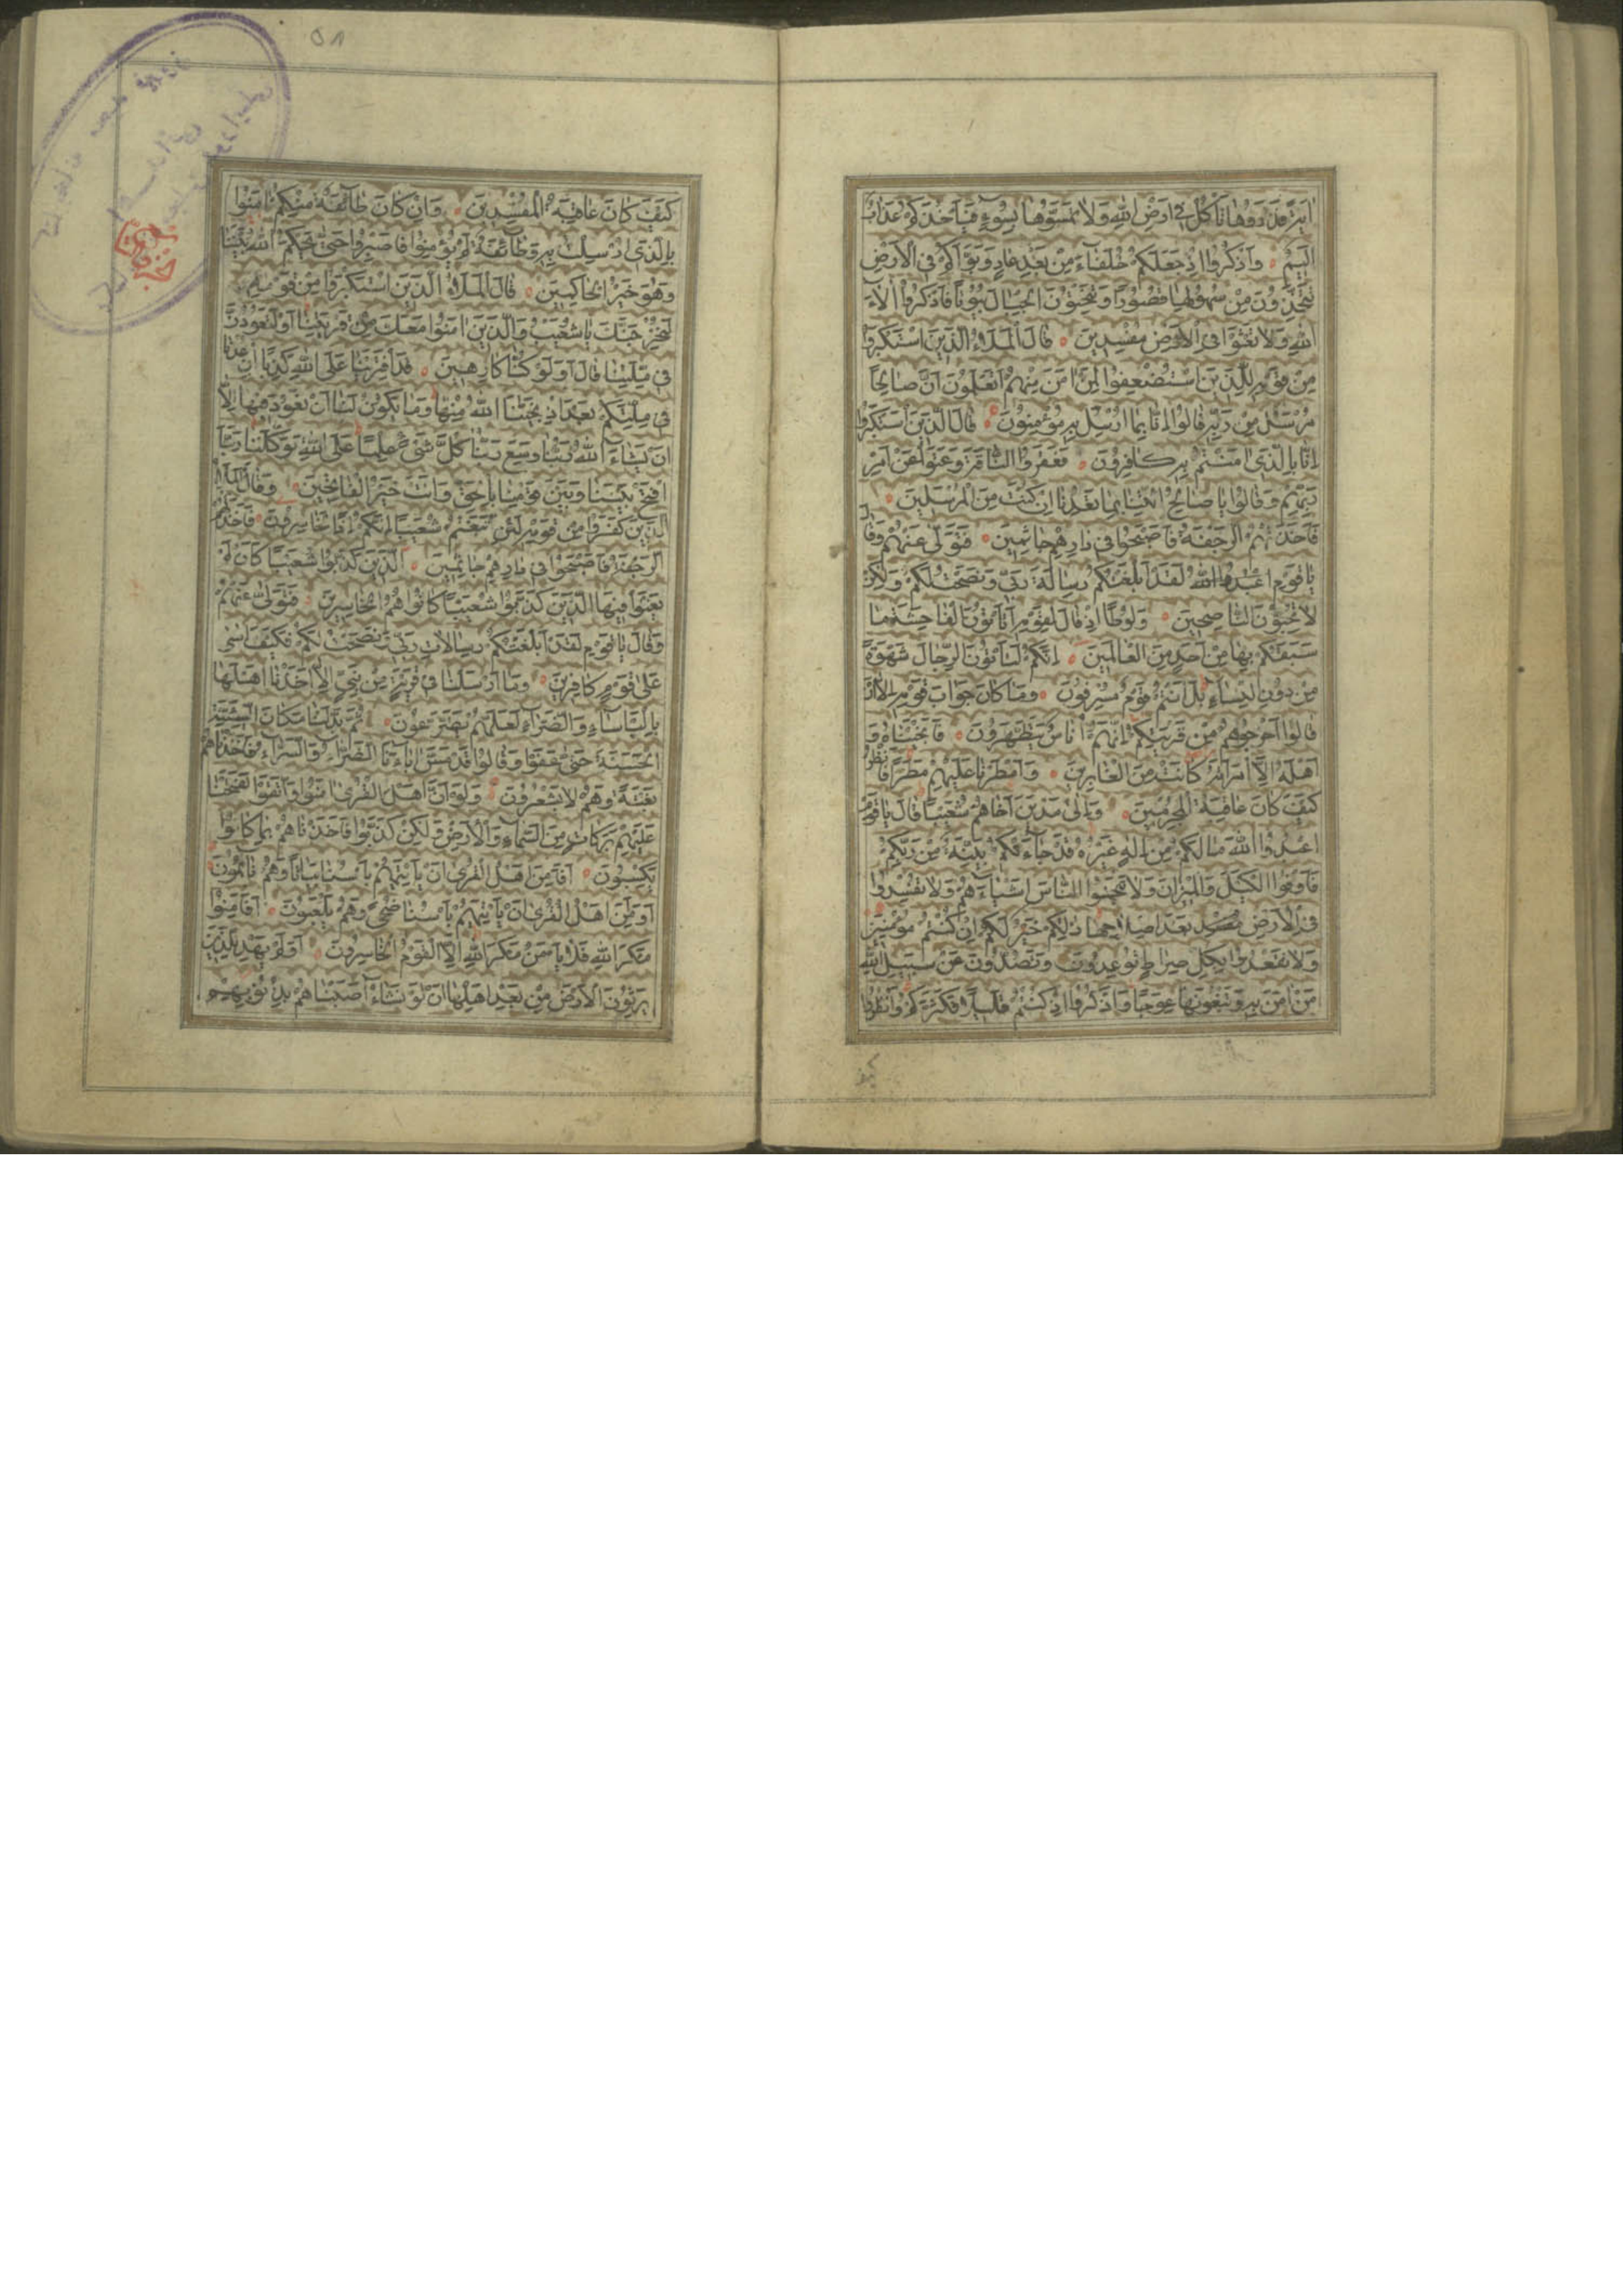 اٰيَةً فَذَرُوهَا تَاْكُلْ فِى اَرْضِ اللهِ وَلَا تَمَسُّوهَا بِسُوٓءٍ فَيَاْخُذَكُمْ عَذَابٌ
اَلِيمٌ وَاذْكُرُوا اِذْ جَعَلَكُمْ خُلَفَآءَ مِنْ بَعْدِ عَادٍ وَبَوَّاَكُمْ فِى الْاَرْضِ
تَتَّخِذُونَ مِنْ سُهُولِهَا قُصُورًا وَتَنْحِتُونَ الْجِبَالَ بُيُوتًا فَاذْكُرُوا اٰلَآءَ
اللهِ وَلَا تَعْثَوْا فِى الْاَرْضِ مُفْسِدِينَ قَالَ الْمَلَاُ الَّذِينَ اسْتَكْبَرُوا
مِنْ قَوْمِهِ لِلَّذِينَ اسْتُضْعِفُوا لِمَنْ اٰمَنَ مِنْهُمْ اَتَعْلَمُونَ اَنَّ صَالِحًا
مُرْسَلٌ مِنْ رَبِّهِ قَالُوا اِنَّا بِمَا اُرْسِلَ بِهِ مُؤْمِنُونَ قَالَ الَّذِينَ اسْتَكْبَرُوا
اِنَّا بِالَّذِى اٰمَنْتُمْ بِهِ كَافِرُونَ فَعَقَرُوا النَّاقَةَ وَعَتَوْا عَنْ اَمْرِ
رَبِّهِمْ وَقَالُوا يَا صَالِحُ ائْتِنَا بِمَا تَعِدُنَا اِنْ كُنْتَ مِنَ الْمُرْسَلِينَ
فَاَخَذَتْهُمُ الرَّجْفَةُ فَاَصْبَحُوا فِى دَارِهِمْ جَاثِمِينَ فَتَوَلّٰى عَنْهُمْ وَقَالَ
يَا قَوْمِ لَقَدْ اَبْلَغْتُكُمْ رِسَالَةَ رَبِّى وَنَصَحْتُ لَكُمْ وَلٰكِنْ
لَا تُحِبُّونَ النَّاصِحِينَ وَلُوطًا اِذْ قَالَ لِقَوْمِهِ اَتَاْتُونَ الْفَاحِشَةَ مَا
سَبَقَكُمْ بِهَا مِنْ اَحَدٍ مِنَ الْعَالَمِينَ اِنَّكُمْ لَتَاْتُونَ الرِّجَالَ شَهْوَةً
مِنْ دُونِ النِّسَآءِ بَلْ اَنْتُمْ قَوْمٌ مُسْرِفُونَ وَمَا كَانَ جَوَابَ قَوْمِهِ اِلَّا اَنْ
قَالُوا اَخْرِجُوهُمْ مِنْ قَرْيَتِكُمْ اِنَّهُمْ اُنَاسٌ يَتَطَهَّرُونَ فَاَنْجَيْنَاهُ وَ
اَهْلَهُ اِلَّا امْرَاَتَهُ كَانَتْ مِنَ الْغَابِرِينَ وَاَمْطَرْنَا عَلَيْهِمْ مَطَرًا فَانْظُرْ
كَيْفَ كَانَ عَاقِبَةُ الْمُجْرِمِينَ وَاِلٰى مَدْيَنَ اَخَاهُمْ شُعَيْبًا قَالَ يَا قَوْمِ
اعْبُدُوا اللهَ مَا لَكُمْ مِنْ اِلٰهٍ غَيْرُهُ قَدْ جَآءَتْكُمْ بَيِّنَةٌ مِنْ رَبِّكُمْ
فَاَوْفُوا الْكَيْلَ وَالْمِيزَانَ وَلَا تَبْخَسُوا النَّاسَ اَشْيَآءَهُمْ وَلَا تُفْسِدُوا
فِى الْاَرْضِ بَعْدَ اِصْلَاحِهَا ذٰلِكُمْ خَيْرٌ لَكُمْ اِنْ كُنْتُمْ مُؤْمِنِينَ
وَلَا تَقْعُدُوا بِكُلِّ صِرَاطٍ تُوعِدُونَ وَتَصُدُّونَ عَنْ سَبِيلِ اللهِ
مَنْ اٰمَنَ بِهِ وَتَبْغُونَهَا عِوَجًا وَاذْكُرُوا اِذْ كُنْتُمْ قَلِيلًا فَكَثَّرَكُمْ وَانْظُرُوا
كيف
٥٨
كَيْفَ كَانَ عَاقِبَةُ الْمُفْسِدِينَ وَاِنْ كَانَ طَآئِفَةٌ مِنْكُمْ اٰمَنُوا
بِالَّذِى اُرْسِلْتُ بِهِ وَطَآئِفَةٌ لَمْ يُؤْمِنُوا فَاصْبِرُوا حَتّٰى يَحْكُمَ اللهُ بَيْنَنَا
وَهُوَ خَيْرُ الْحَاكِمِينَ قَالَ الْمَلَاُ الَّذِينَ اسْتَكْبَرُوا مِنْ قَوْمِهِ
لَنُخْرِجَنَّكَ يَا شُعَيْبُ وَالَّذِينَ اٰمَنُوا مَعَكَ مِنْ قَرْيَتِنَا اَوْ لَتَعُودُنَّ
فِى مِلَّتِنَا قَالَ اَوَلَوْ كُنَّا كَارِهِينَ قَدِ افْتَرَيْنَا عَلَى اللهِ كَذِبًا اِنْ عُدْنَا
فِى مِلَّتِكُمْ بَعْدَ اِذْ نَجّٰنَا اللهُ مِنْهَا وَمَا يَكُونُ لَنَا اَنْ نَعُودَ فِيهَا اِلَّا
اَنْ يَشَآءَ اللهُ رَبُّنَا وَسِعَ رَبُّنَا كُلَّ شَىْءٍ عِلْمًا عَلَى اللهِ تَوَكَّلْنَا رَبَّنَا
افْتَحْ بَيْنَنَا وَبَيْنَ قَوْمِنَا بِالْحَقِّ وَاَنْتَ خَيْرُ الْفَاتِحِينَ وَقَالَ الْمَلَاُ
الَّذِينَ كَفَرُوا مِنْ قَوْمِهِ لَئِنِ اتَّبَعْتُمْ شُعَيْبًا اِنَّكُمْ اِذًا لَخَاسِرُونَ فَاَخَذَتْهُمُ
الرَّجْفَةُ فَاَصْبَحُوا فِى دَارِهِمْ جَاثِمِينَ الَّذِينَ كَذَّبُوا شُعَيْبًا كَاَنْ لَمْ
يَغْنَوْا فِيهَا الَّذِينَ كَذَّبُوا شُعَيْبًا كَانُوا هُمُ الْخَاسِرِينَ فَتَوَلّٰى عَنْهُمْ
وَقَالَ يَا قَوْمِ لَقَدْ اَبْلَغْتُكُمْ رِسَالَاتِ رَبِّى وَنَصَحْتُ لَكُمْ فَكَيْفَ اٰسٰى
عَلٰى قَوْمٍ كَافِرِينَ وَمَا اَرْسَلْنَا فِى قَرْيَةٍ مِنْ نَبِىٍّ اِلَّا اَخَذْنَا اَهْلَهَا
بِالْبَاْسَآءِ وَالضَّرَّآءِ لَعَلَّهُمْ يَضَّرَّعُونَ ثُمَّ بَدَّلْنَا مَكَانَ السَّيِّئَةِ
الْحَسَنَةَ حَتّٰى عَفَوْا وَقَالُوا قَدْ مَسَّ اٰبَآءَنَا الضَّرَّآءُ وَالسَّرَّآءُ فَاَخَذْنَاهُمْ
بَغْتَةً وَهُمْ لَا يَشْعُرُونَ وَلَوْ اَنَّ اَهْلَ الْقُرٰى اٰمَنُوا وَاتَّقَوْا لَفَتَحْنَا
عَلَيْهِمْ بَرَكَاتٍ مِنَ السَّمَآءِ وَالْاَرْضِ وَلٰكِنْ كَذَّبُوا فَاَخَذْنَاهُمْ بِمَا كَانُوا
يَكْسِبُونَ اَفَاَمِنَ اَهْلُ الْقُرٰى اَنْ يَاْتِيَهُمْ بَاْسُنَا بَيَاتًا وَهُمْ نَآئِمُونَ
اَوَاَمِنَ اَهْلُ الْقُرٰى اَنْ يَاْتِيَهُمْ بَاْسُنَا ضُحًى وَهُمْ يَلْعَبُونَ اَفَاَمِنُوا
مَكْرَ اللهِ فَلَا يَاْمَنُ مَكْرَ اللهِ اِلَّا الْقَوْمُ الْخَاسِرُونَ اَوَلَمْ يَهْدِ لِلَّذِينَ
يَرِثُونَ الْاَرْضَ مِنْ بَعْدِ اَهْلِهَا اَنْ لَوْ نَشَآءُ اَصَبْنَاهُمْ بِذُنُوبِهِمْ